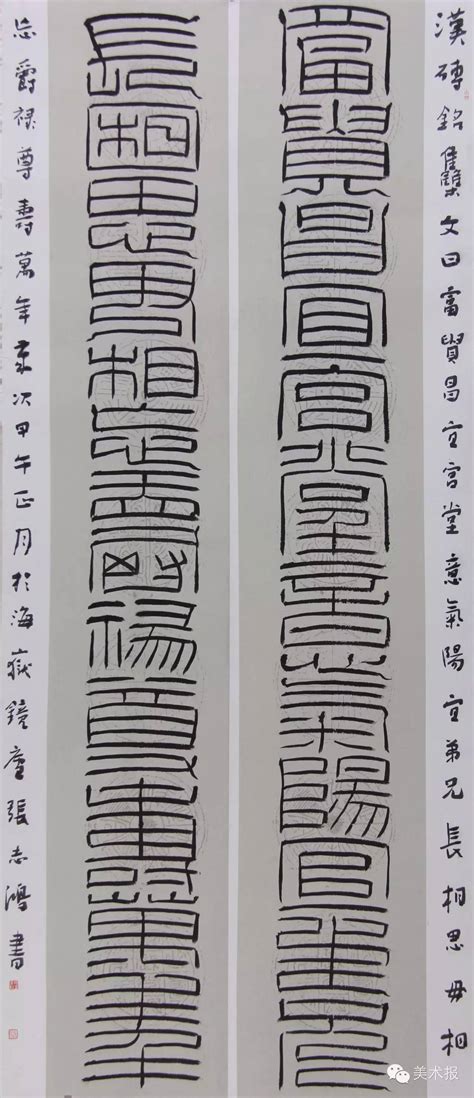 漢磚銘雧文曰富貴昌宜宮堂意氣陽宜弟兄長相思毋相
富貴昌宜宮堂意氣陽宜弟兄
長相思毋相忘爵禄尊壽萬年
忘爵禄尊壽萬年歲次甲午正月於海嶽鏡廬張志鴻書
美术报